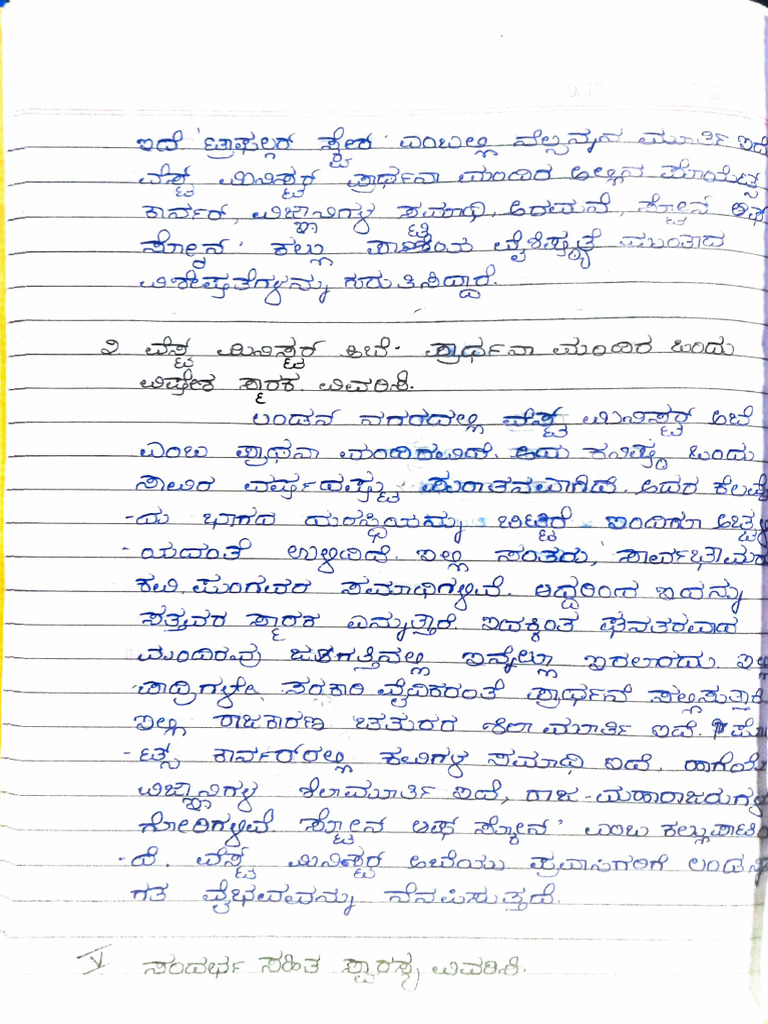 ಇದೆ 'ಟ್ರಾಫಲ್ಗರ್ ಸ್ಕ್ವೇರ್' ಎಂಬಲ್ಲಿ ನೆಲ್ಸನ್ನನ ಮೂರ್ತಿ ಇದೆ
ವೆಸ್ಟ್ ಮಿನಿಸ್ಟರ್ ಪ್ರಾರ್ಥನಾ ಮಂದಿರ ಅಲ್ಲಿನ ಪೊಯೆಟ್ಸ್
ಕಾರ್ನರ್, ವಿಜ್ಞಾನಿಗಳ ಸಮಾಧಿ, ಅರಮನೆ, ಸ್ಟೋನ ಆಫ್
ಸ್ಕೋನ' ಕಲ್ಲು ಪಾಟಿಯ ವೈಶಿಷ್ಟ್ಯತೆ ಮುಂತಾದ
ವಿಶೇಷತೆಗಳನ್ನು ಗುರುತಿಸಿದ್ದಾರೆ.
೨ ವೆಸ್ಟ್ ಮಿನಿಸ್ಟರ್ ಅಬೆ- ಪ್ರಾರ್ಥನಾ ಮಂದಿರ ಒಂದು
ವಿಶೇಶ ಸ್ಮಾರಕ. ವಿವರಿಸಿ.
ಲಂಡನ ನಗರದಲ್ಲಿ ವೆಸ್ಟ್ ಮಿನಿಸ್ಟರ್ ಅಬೆ
ಎಂಬ ಪ್ರಾಥನಾ ಮಂದಿರವಿದೆ. ಇದು ಕನಿಷ್ಠ ಒಂದು
ಸಾವಿರ ವರ್ಷದಷ್ಟು ಪುರಾತನವಾಗಿದೆ. ಅದರ ಕೆಲವೆಡೆ
-ಯ ಭಾಗದ ದುರಸ್ಥಿಯನ್ನು ಬಿಟ್ಟರೆ ಇಂದಿಗೂ ಅಚ್ಚಳಿ
-ಯದಂತೆ ಉಳಿದಿದೆ. ಇಲ್ಲಿ ಸಂತರು, ಸಾರ್ವಭೌಮರ
ಕವಿ, ಪುಂಗವರ ಸಮಾಧಿಗಳಿವೆ. ಆದ್ದರಿಂದ ಇದನ್ನು
ಸತ್ತವರ ಸ್ಮಾರಕ ಎನ್ನುತ್ತಾರೆ. ಇದಕ್ಕಿಂತ ಘನತರವಾದ
ಮಂದಿರವು ಜಗತ್ತಿನಲ್ಲಿ ಇನ್ನೆಲ್ಲೂ ಇರಲಾರದು. ಇಲ್ಲಿ
ಪಾದ್ರಿಗಳೇ ಸರಕಾರಿ ವೈದಿಕರಂತೆ ಪ್ರಾರ್ಥನೆ ಸಲ್ಲಿಸುತ್ತಾರೆ
ಇಲ್ಲಿ ರಾಜಕಾರಣ ಚತುರರ ಶಿಲಾ ಮೂರ್ತಿ ಇದೆ. ಪೊಯೆ
-ಟ್ಸ್ ಕಾರ್ನರ್‌ರಲ್ಲಿ ಕವಿಗಳ ಸಮಾಧಿ ಇದೆ. ಹಾಗೆಯೆ
ವಿಜ್ಞಾನಿಗಳ ಶಿಲಾಮೂರ್ತಿ ಇದೆ, ರಾಜ-ಮಹಾರಾಜರುಗಳ
ಗೋರಿಗಳಿವೆ. 'ಸ್ಟೋನ ಆಫ್ ಸ್ಕೋನ' ಎಂಬ ಕಲ್ಲುಪಾಟಿ
-ದೆ. ವೆಸ್ಟ್ ಮಿನಿಸ್ಟರ್ ಅಬೆಯು ಪ್ರವಾಸಿಗರಿಗೆ ಲಂಡನ್ನಿನ
ಗತ ವೈಭವವನ್ನು ನೆನಪಿಸುತ್ತದೆ.
V ಸಂದರ್ಭ ಸಹಿತ ಸ್ವಾರಸ್ಯ ವಿವರಿಸಿ.